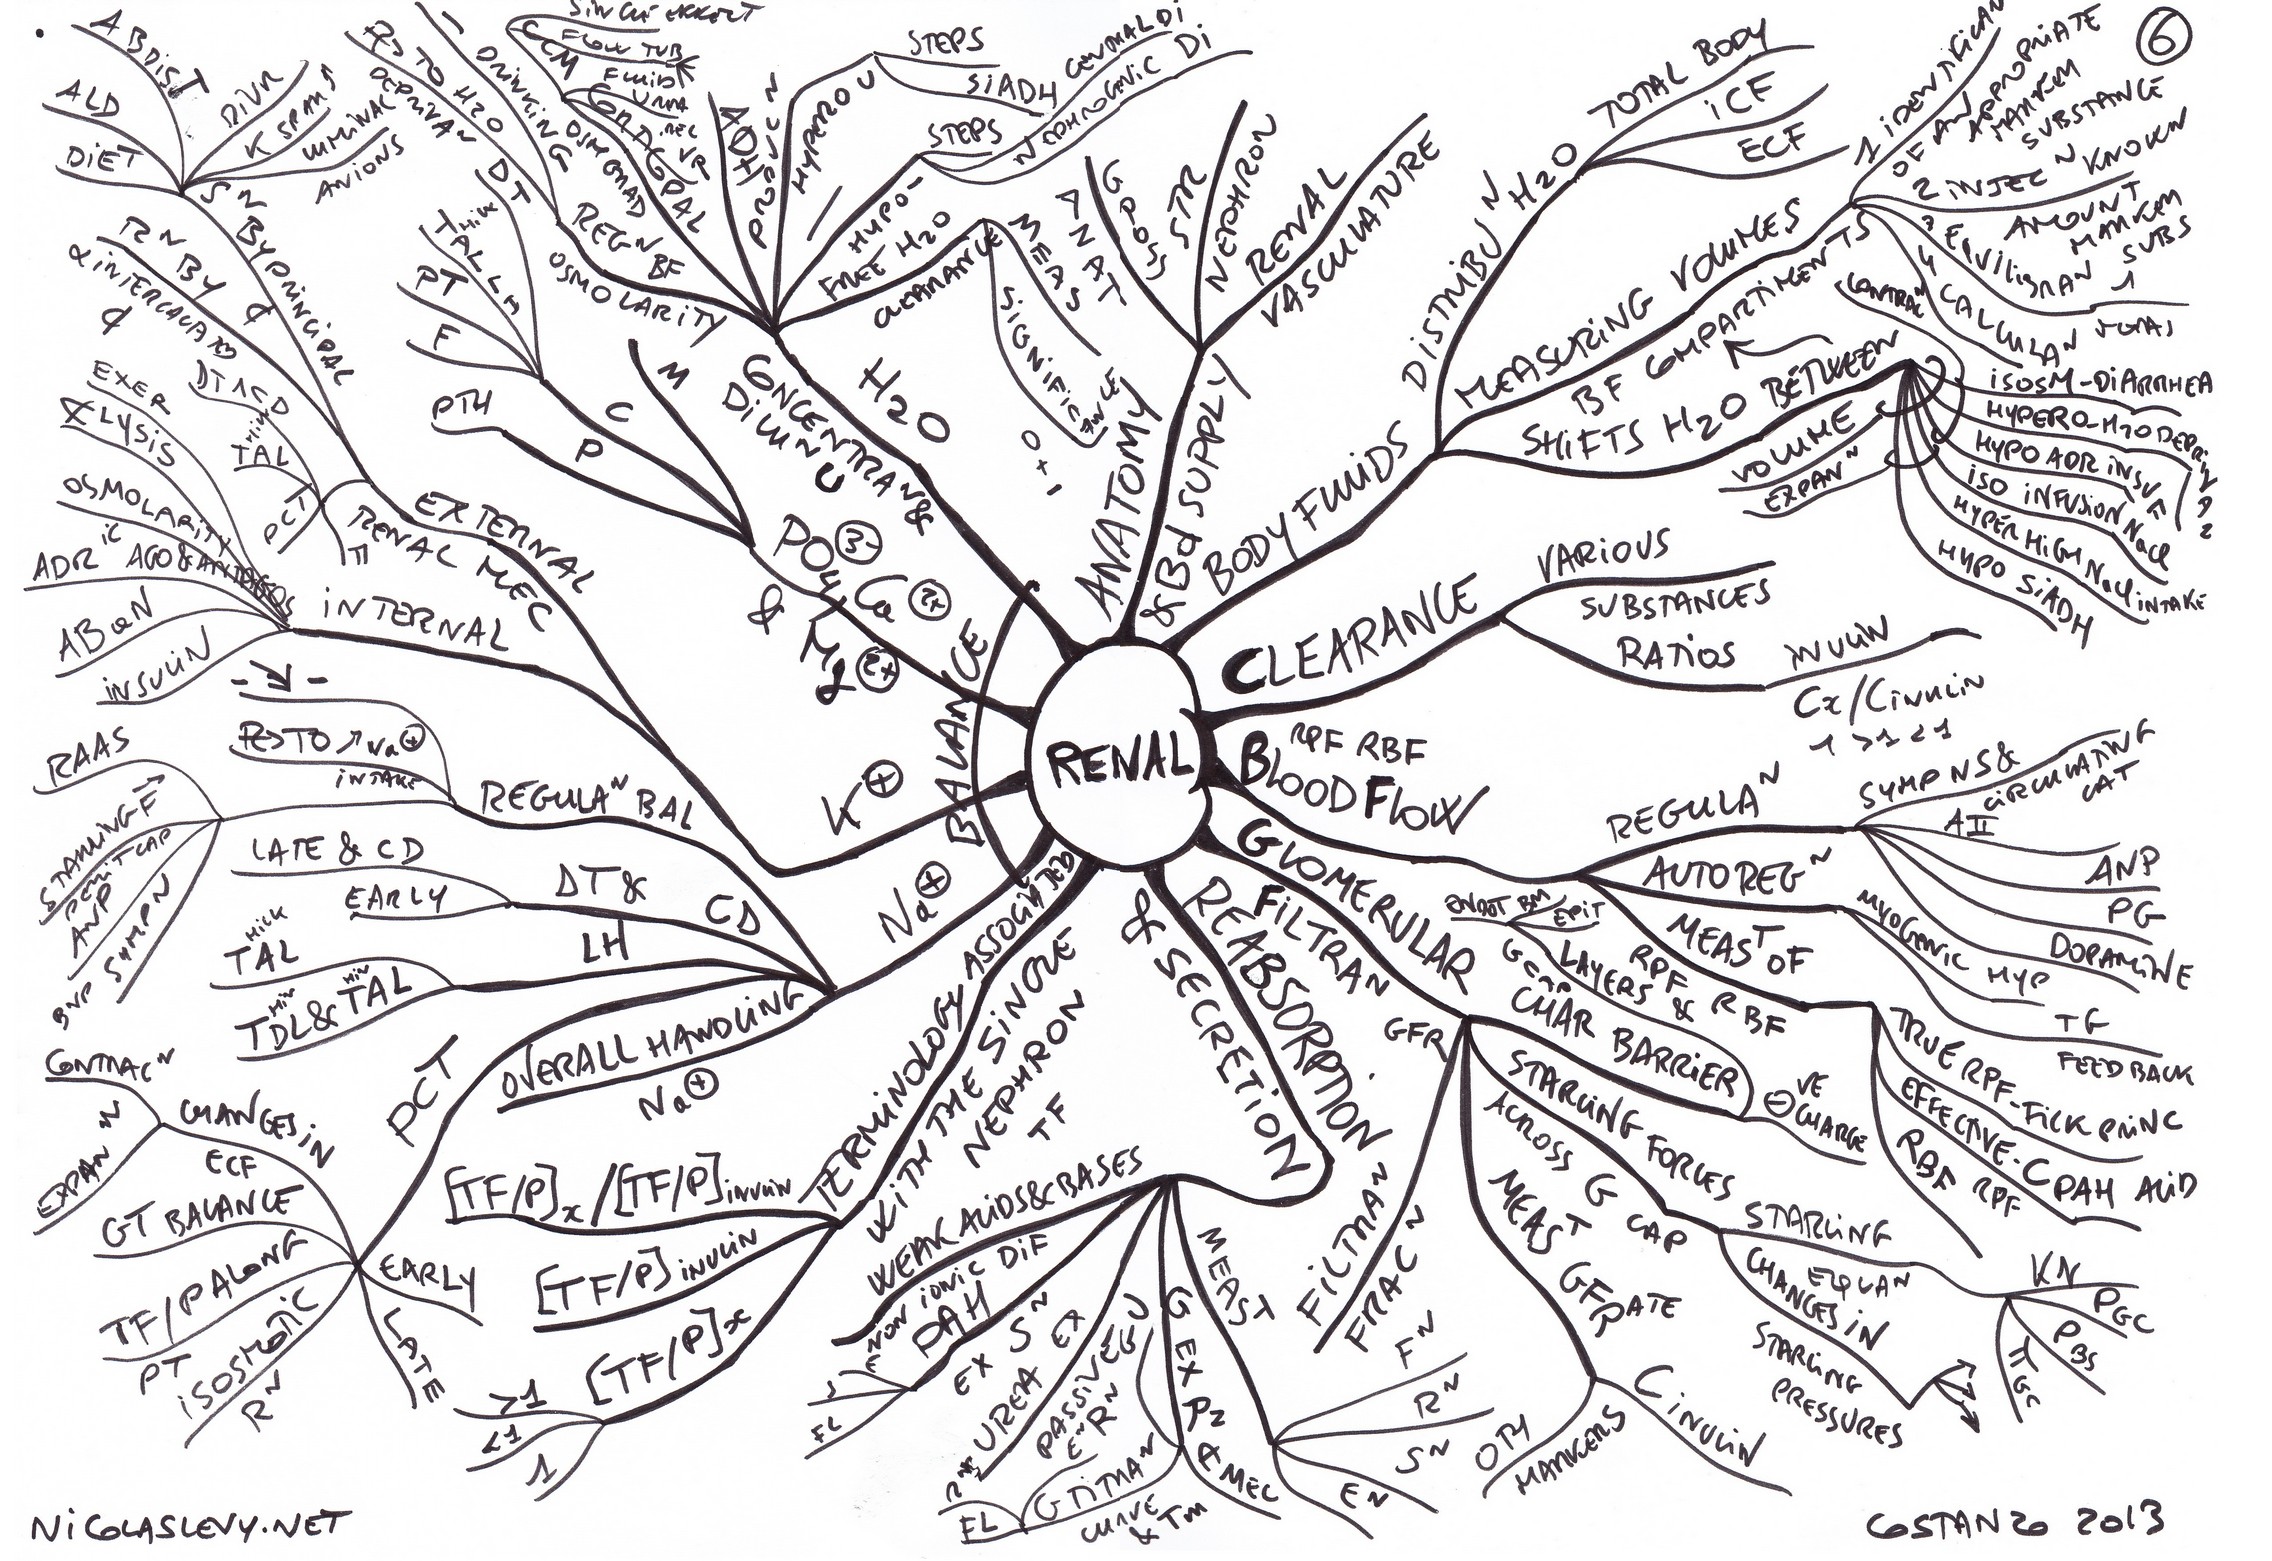 6
RENAL
ANATOMY
& Bd SUPPLY
ANAT
GROSS
STR
NEPHRON
RENAL
VASCULATURE
BODY FLUIDS
DISTRIBUᴺ H2O
TOTAL BODY
ICF
ECF
MEASURING VOLUMES
BF COMPARTIMENTS
1 IDENTIFICAN
OF AN APPROPRIATE
MARKER
SUBSTANCE
2 INJECᴺ KNOWN
AMOUNT
MARKER
SUBS
3 EQUILIBRAN 1
4 CALCULAN
SHIFTS H2O BETWEEN
CONTRACᴺ
VOLUME
EXPANᴺ
ISOSM-DIARRHEA
HYPERO-H2O DEPRI
HYPO ADR INSU
ISO INFUSION NaCl
HYPER HIGH NaCl INTAKE
HYPO SIADH
CLEARANCE
VARIOUS
SUBSTANCES
RATIOS
INULIN
Cx/CINULIN
1 >1 <1
BLOOD FLOW
RPF RBF
REGULAᴺ
SYMP NS &
CIRCULATING
CAT
AII
ANP
PG
DOPAMINE
AUTOREGᴺ
MYOGENIC HYP
TG
FEEDBACK
MEASᵀ OF
RPF & RBF
TRUE RPF-FICK PRINC
EFFECTIVE-C PAH ACID
RBF RPF
GLOMERULAR
FILTRAN
GFR
LAYERS
ENDOT BM EPIT
G CAP
CHAR BARRIER
⊖VE
CHARGE
STARLING FORCES
ACROSS G CAP
STARLING
EQUAN
KN
PGC
PBS
πGC
CHANGES IN
STARLING
PRESSURES
MEASᵀ GFRATE
CINULIN
OTH
MARKERS
FILTRAᴺ
FRACᴺ
REABSORPTION
& SECRETION
MEAST
Fᴺ
Rᴺ
Sᴺ
Eᴺ
G EX
R MEC
G TITRAᴺ
CURVE
& Tm
FL
UREA EX
PASSIVE
PAH
EX Sᴺ
FL
WEAK ACIDS & BASES
NON IONIC DIF
TERMINOLOGY ASSOCIATED
WITH THE SINGLE
NEPHRON
TF
[TF/P]x/[TF/P]INULIN
[TF/P] INULIN
[TF/P]x
>1
<1
1
BALANCE
Na⊕
OVERALL HANDLING
Na⊕
PCT
CHANGES IN
ECF
CONTRACᴺ
EXPANᴺ
GT BALANCE
TF/P ALONG
PT
ISOSMOTIC
Rᴺ
EARLY
LATE
LH
THICK
TAL
TDL & THIN TAL
DT &
CD
LATE & CD
EARLY
REGULAᴺ BAL
RESTO ↗Na⊕
INTAKE
RAAS
STARLING F
PERIT CAP
ANP
SYMPN
BNP
K⊕
INTERNAL
INSULIN
AB
ADRᴵᶜ AGO & ANTAGOS
OSMOLARITY
LYSIS
EXER
EXTERNAL
RENAL MEC
PCT
THIN
TAL
DT
CD
R N BY
α INTERCALATED
S N
BY PRINCIPAL
DIET
ALD
AB DIST
DIUR
K SPAR
LUMINAL
ANIONS
PO4 3-
Ca 2+
& Mg 2+
P
PTH
C
F
PT
THICK
AL LH
DT
M
H2O
CONCENTRAᴺ &
DILUᴺ U
0
+
-
REGᴺ BF
OSMOLARITY
RESTO H2O
DEPRIVAᴺ
DRINKING
CCM
SINGLE EFFECT
FLOW TUB
FLUID
UREA
REC
VR
CORT C GPAL
OSM GRAD
ADH
PRODUCᴺ
HYPERO U
STEPS
SIADH
HYPO-
STEPS
CENTRAL DI
NEPHROGENIC DI
FREE H2O
CLEARANCE
MEAS
SIGNIFICANCE
NICOLASLEVY.NET
COSTANZO 2013